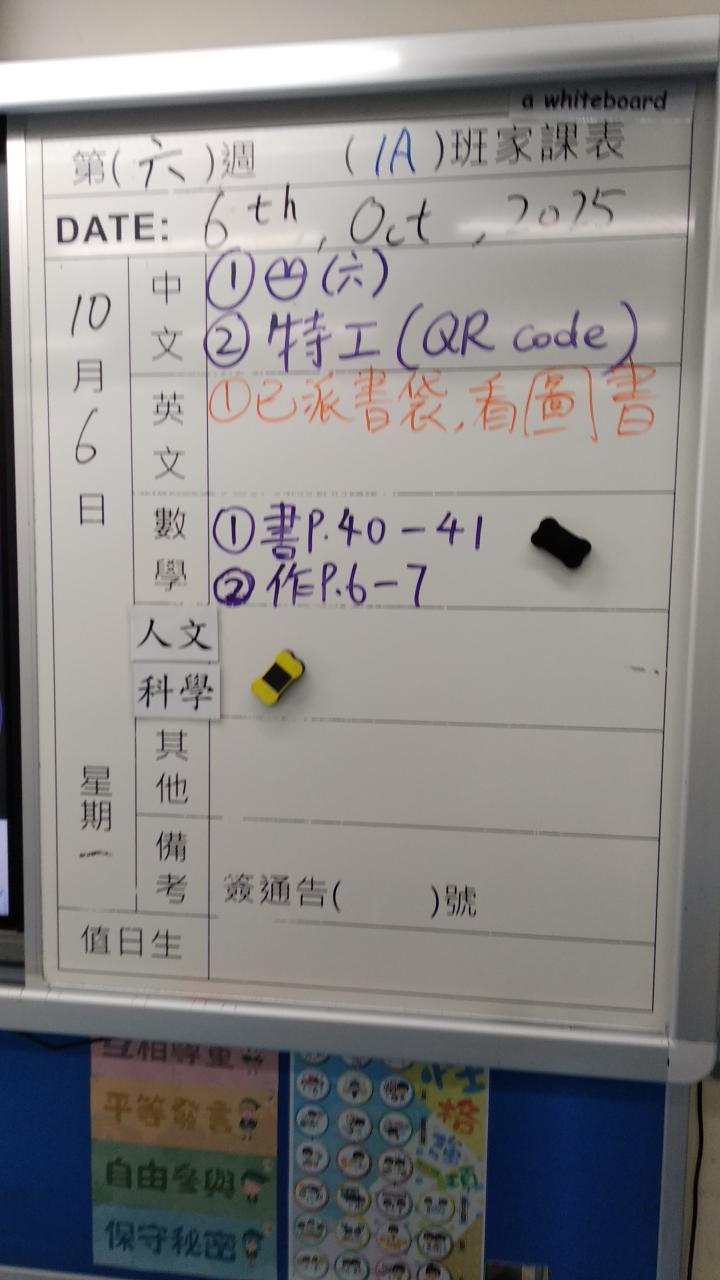 a whiteboard
第(六)週 (1A)班家課表
DATE: 6th, Oct, 2025
10月6日
星期一
中文
①(六)
②特工(QR code)
英文
①已派書袋,看圖書
數學
①書P.40-41
②作P.6-7
人文
科學
其他
備考
簽通告( )號
值日生
互相尊重
平等發言
自由參與
保守秘密
性格
強項